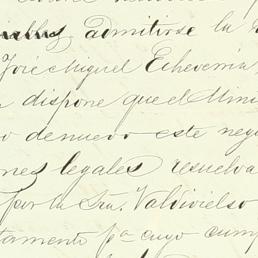 admitirse la
José Miguel Echeverria
dispone que el Mini
o de nuevo este neg
nes legales resuelva
por la Sra. Valdivielso
tamento pa cuyo cump